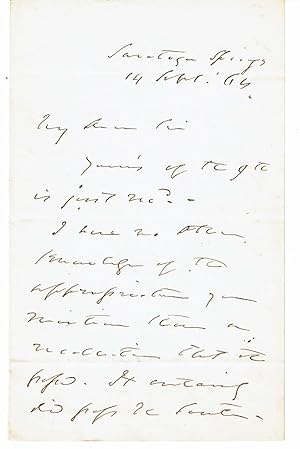 Saratoga Springs
14 Sept. '64.
My dear Sir
Yours of the 9th
is just rec'd. -
I have no other
knowledge of the
appropriation you
mention than a
recollection that it
passed. It certainly
did pass the Senate.